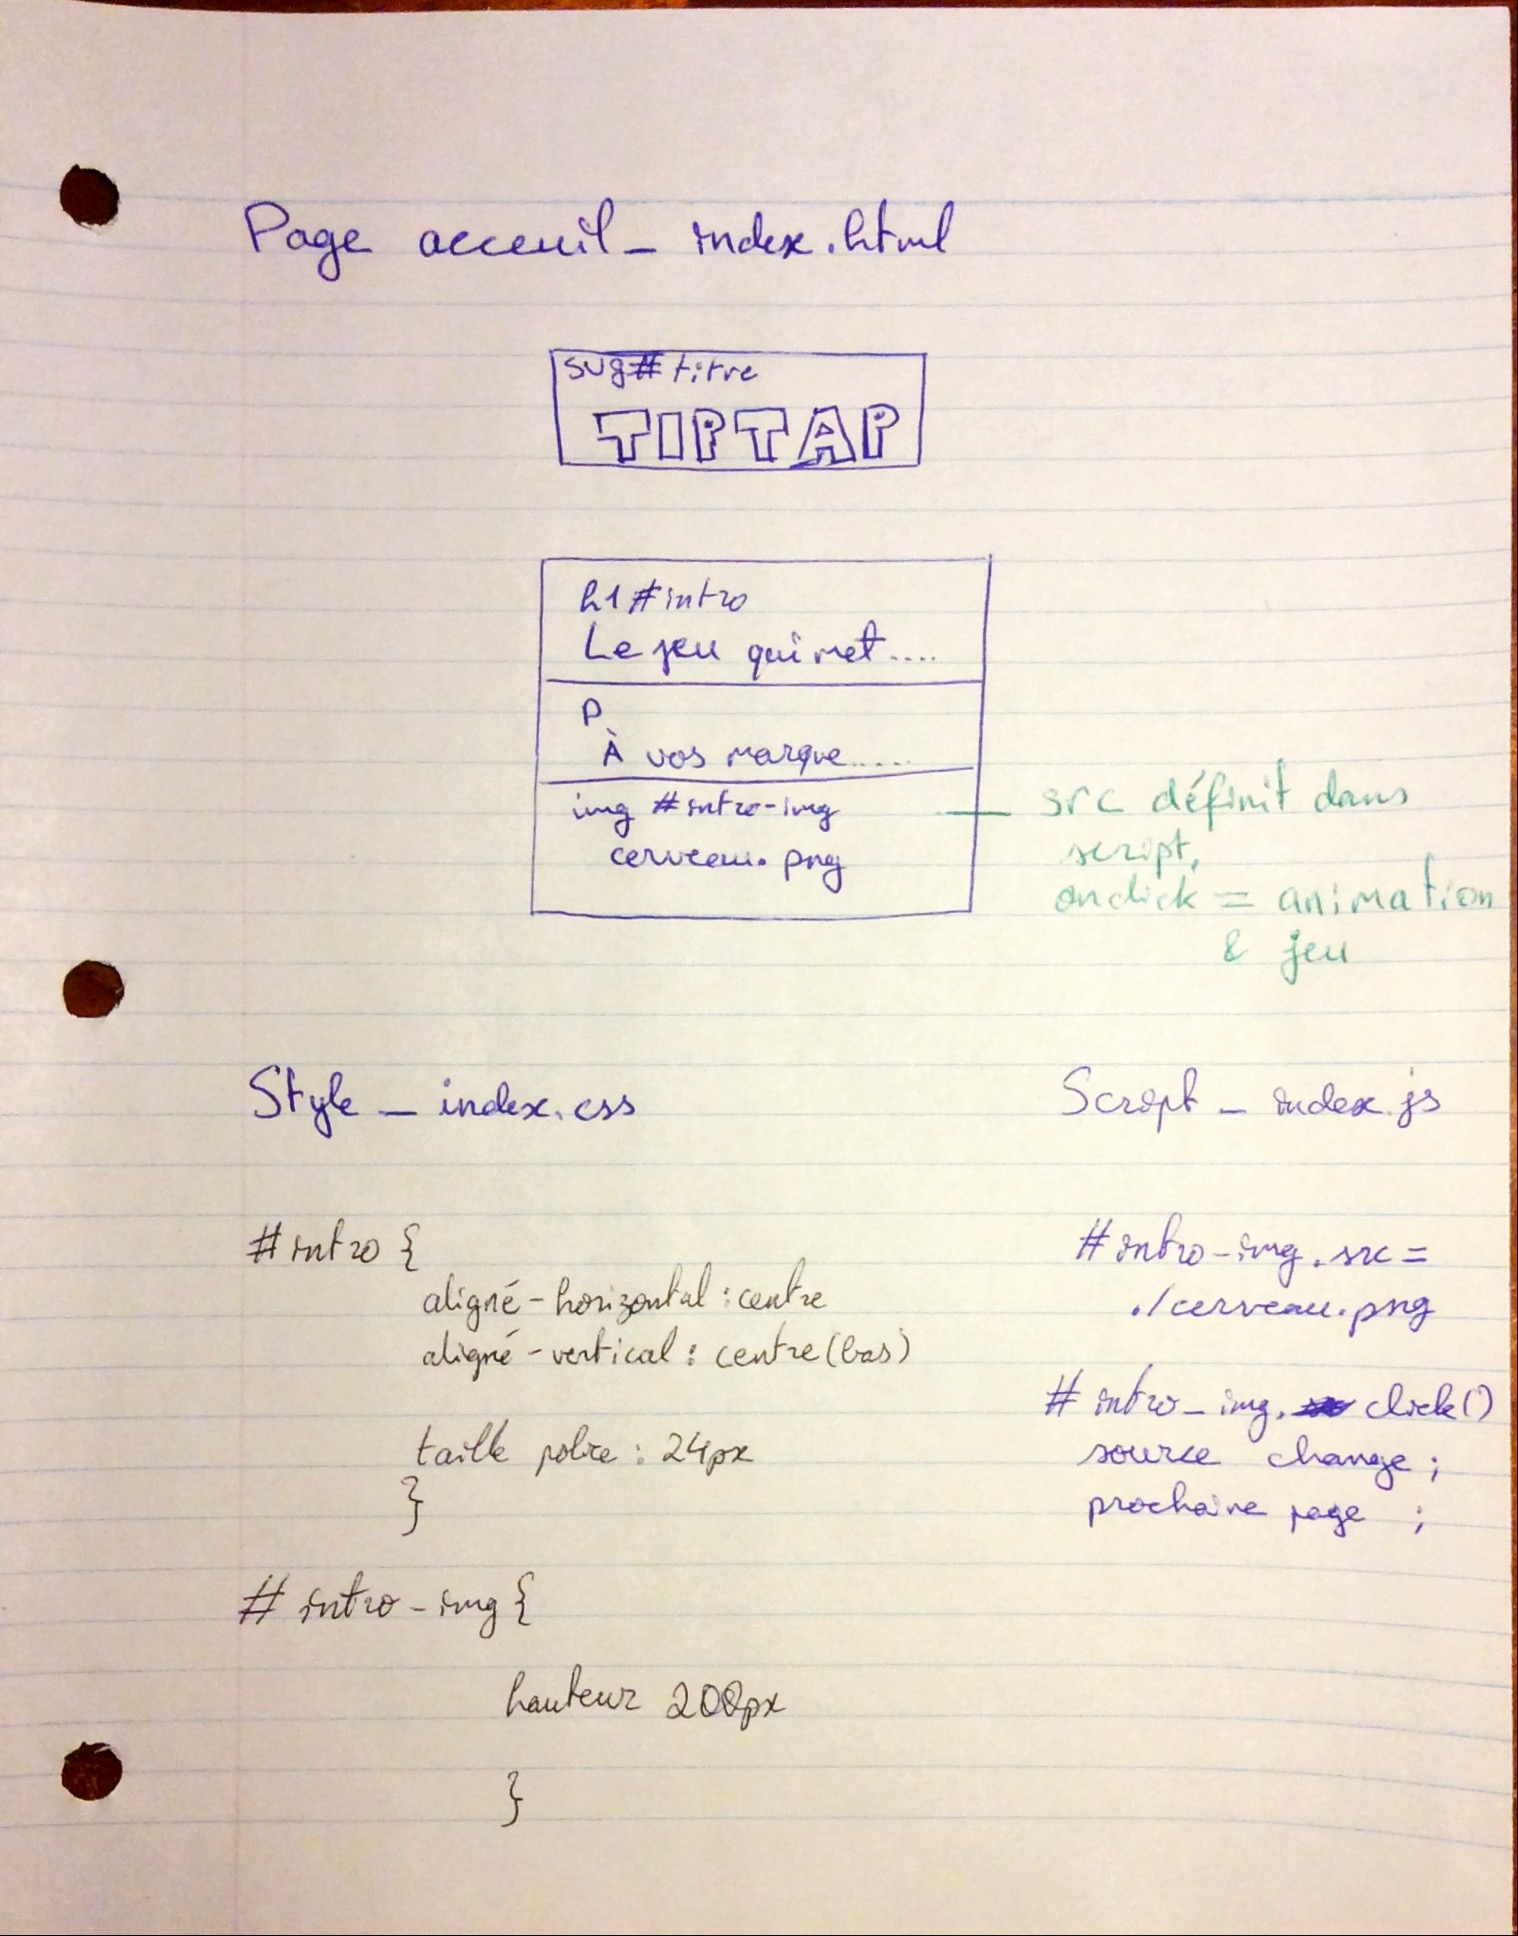 Page acceuil _ index.html
svg#titre
TIPTAP
h1#intro
Le jeu qui met....
P
À vos marque.....
img #intro-img
cerveau.png
src définit dans
script,
onclick = animation
& jeu
Style _ index.css
#intro {
aligné-horizontal : centre
aligné-vertical : centre (bas)
taille police : 24px
}
#intro-img {
hauteur 200px
}
Script _ index.js
#intro-img.src =
./cerveau.png
#intro_img. click()
source change ;
prochaine page ;